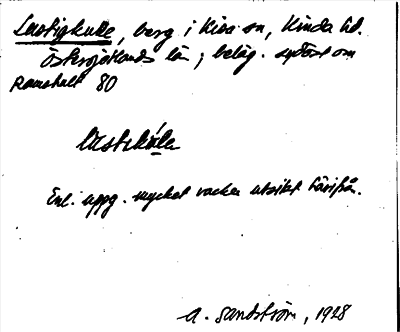 Lustigkulle, berg i Kisa sn, Kinda hd.
Östergötlands län; beläg. sydost om
Ramshult 80
Enl. uppg. mycket vacker utsikt härifrån.
A. Sandström, 1928